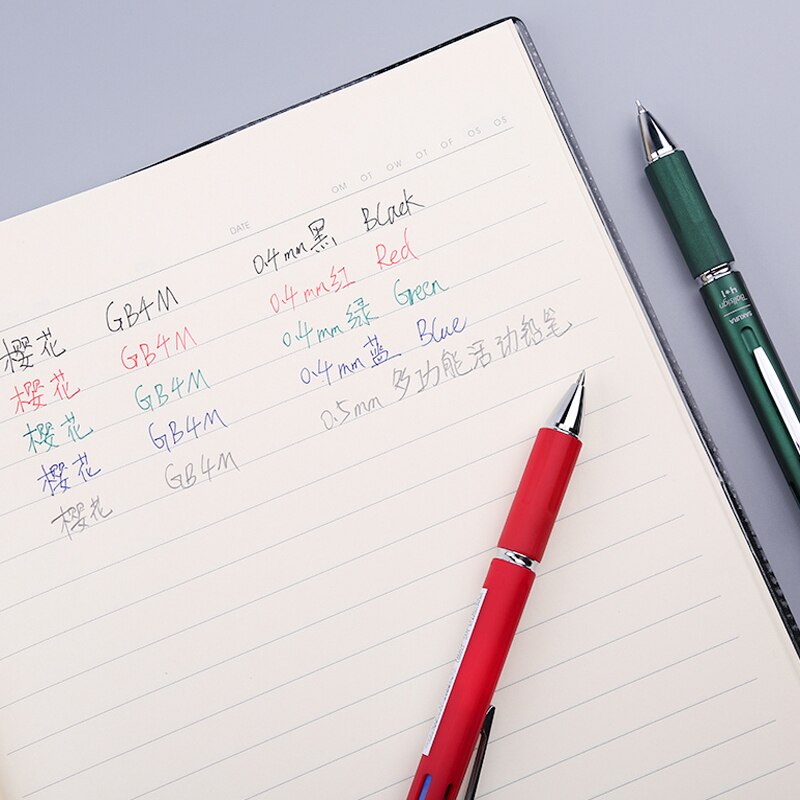 DATE OM OT OW OT OF OS OS
樱花 GB4M 0.4mm黑 Black
樱花 GB4M 0.4mm红 Red
樱花 GB4M 0.4mm绿 Green
樱花 GB4M 0.4mm蓝 Blue
樱花 GB4M 0.5mm 多功能活动铅笔
SAKURA
Ballsign
4+1